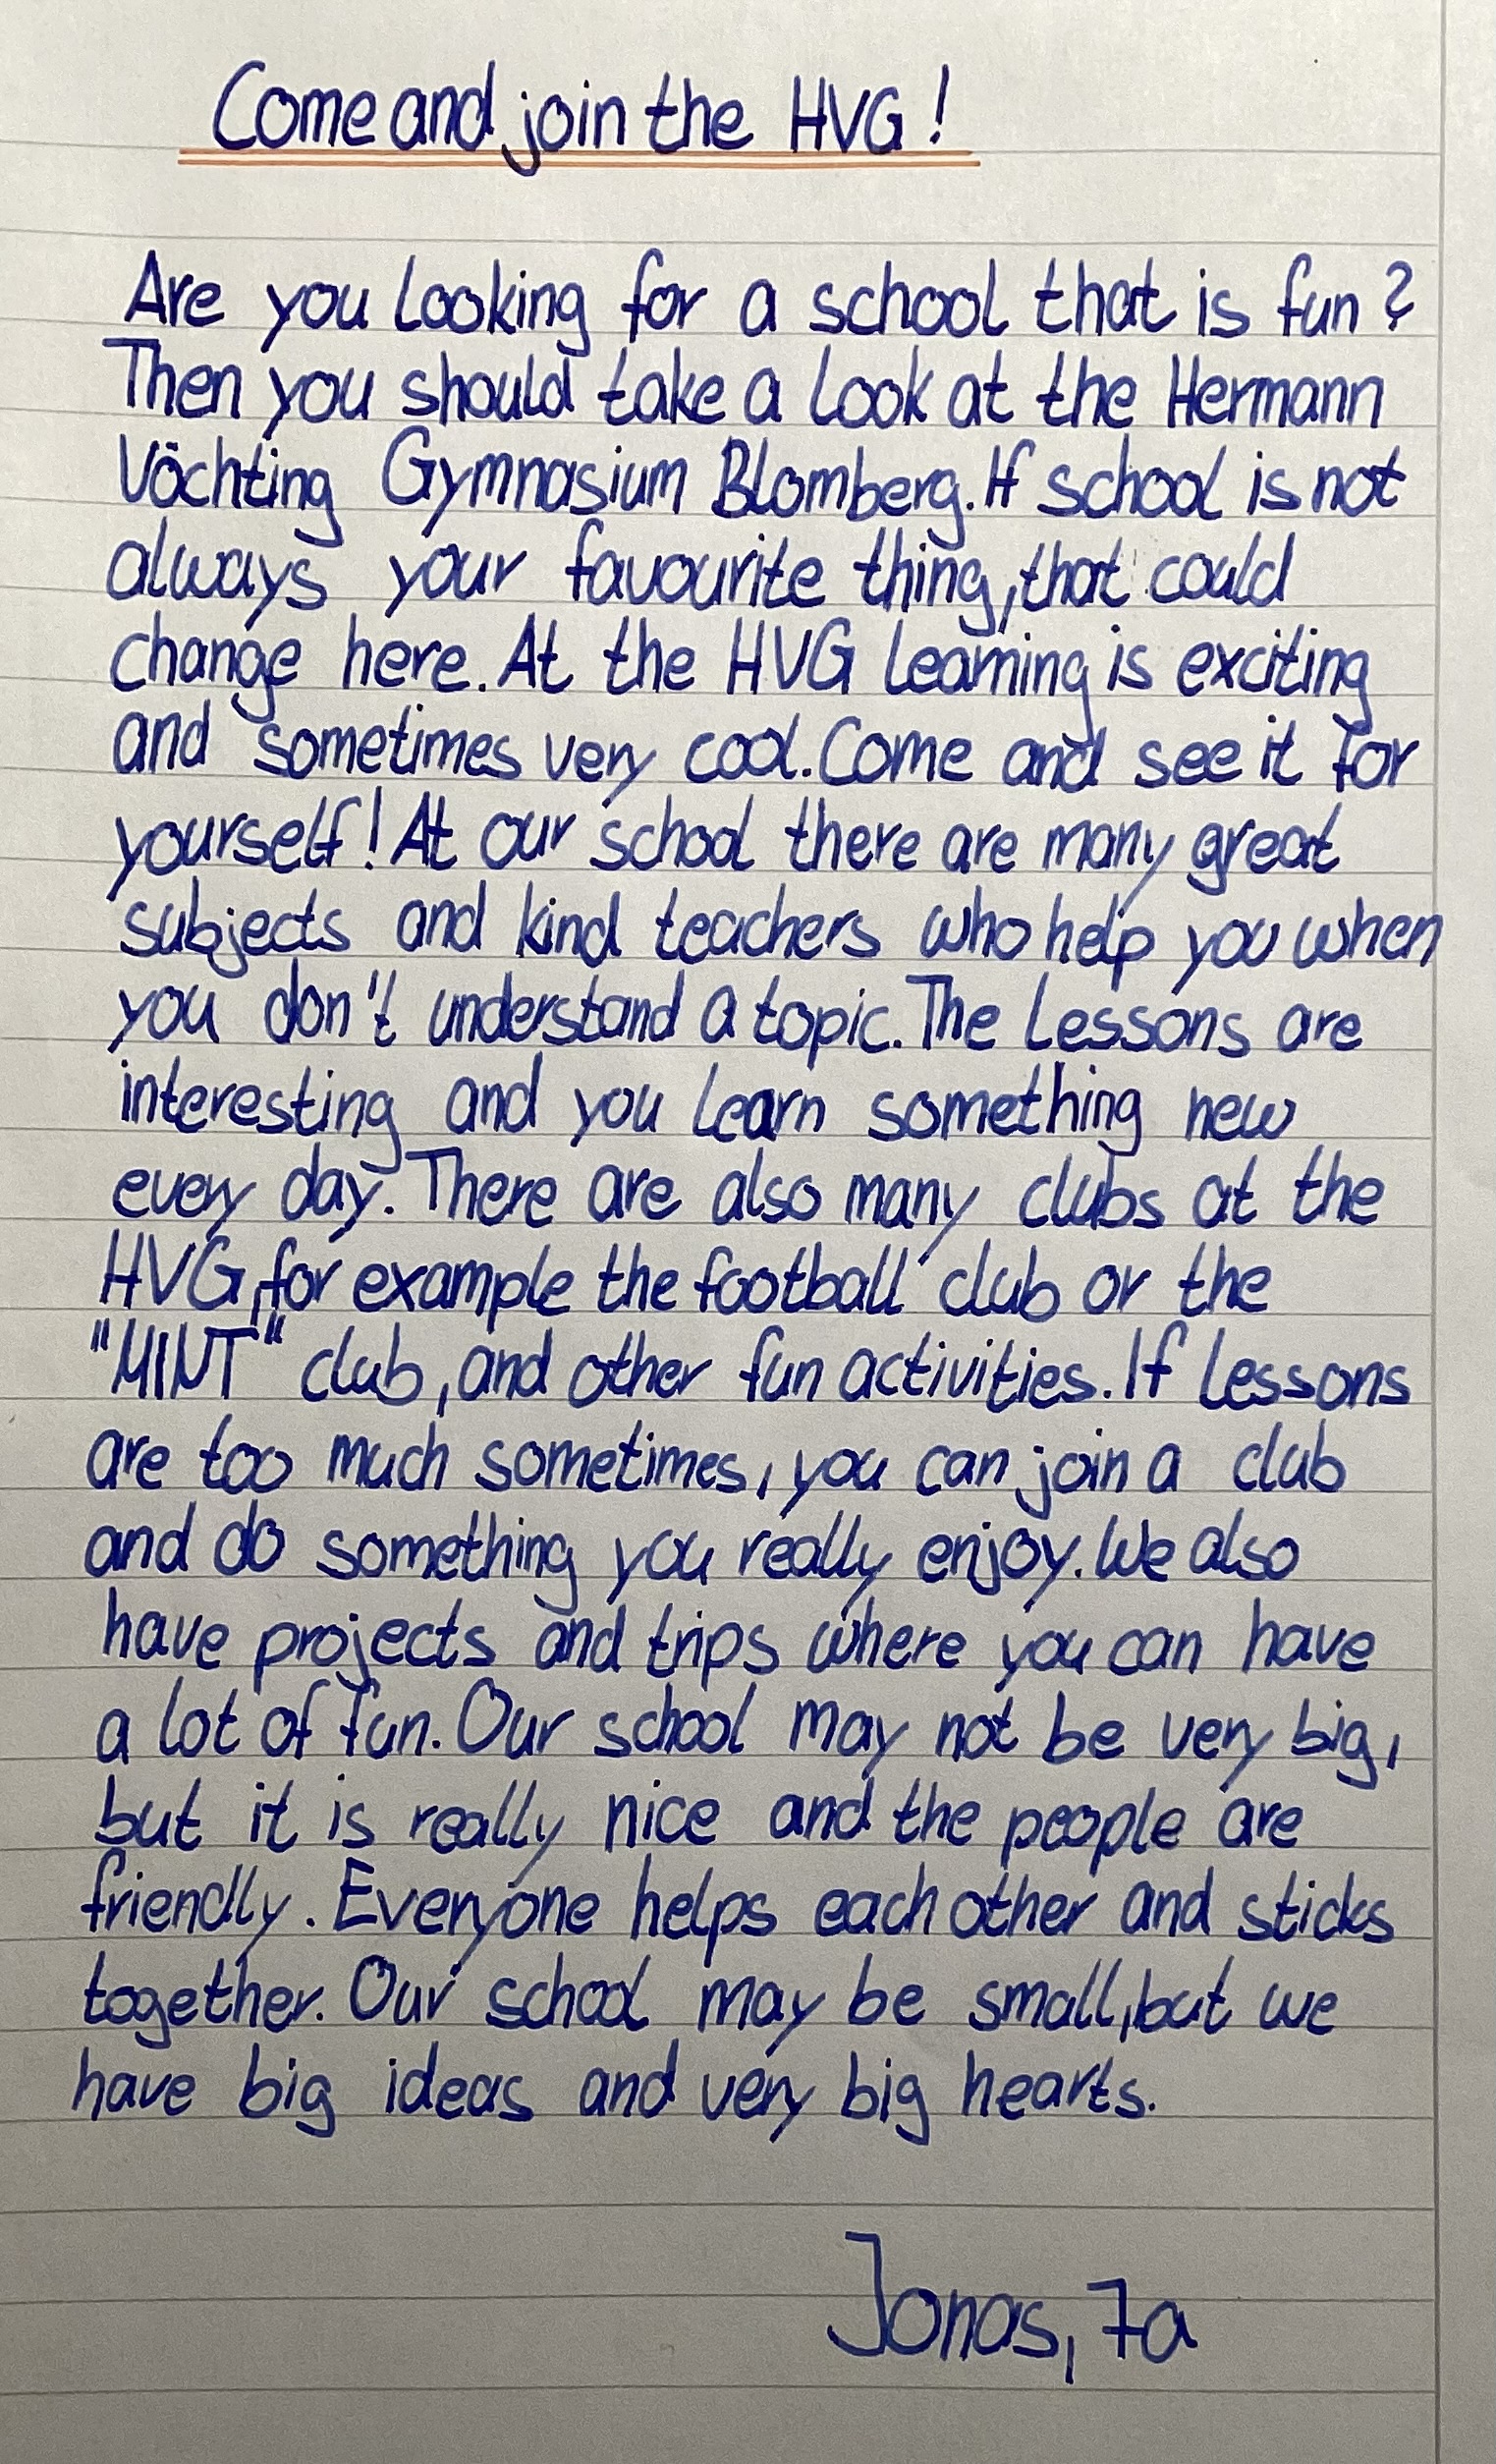 Come and join the HVG!
Are you looking for a school that is fun?
Then you should take a look at the Hermann
Vöchting Gymnasium Blomberg. If school is not
always your favourite thing, that could
change here. At the HVG learning is exciting
and sometimes very cool. Come and see it for
yourself! At our school there are many great
subjects and kind teachers who help you when
you don't understand a topic. The lessons are
interesting and you learn something new
every day. There are also many clubs at the
HVG, for example the football club or the
"MINT" club, and other fun activities. If lessons
are too much sometimes, you can join a club
and do something you really enjoy. We also
have projects and trips where you can have
a lot of fun. Our school may not be very big,
but it is really nice and the people are
friendly. Everyone helps each other and sticks
together. Our school may be small, but we
have big ideas and very big hearts.
Jonas, 7a